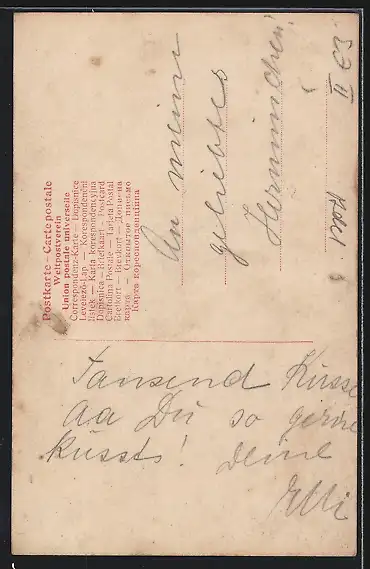 Postkarte – Carte postale
Weltpostverein
Union postale universelle
Correspondenz-Karte — Dopisnice
Levelező-Lap — Korespondenční
lístek — Karta korespondencyjna
Dopisnica — Briefkaart — Postcard
Cartolina Postale — Tarjeta Postal
Brefkort — Brevkort — Допис-на
карта — Открытое письмо
Карта корреспонденциина
An meine
geliebtes
Herminchen!
II 03
Tausend Küsse
da Du so gerne
küssts! Deine
Elli